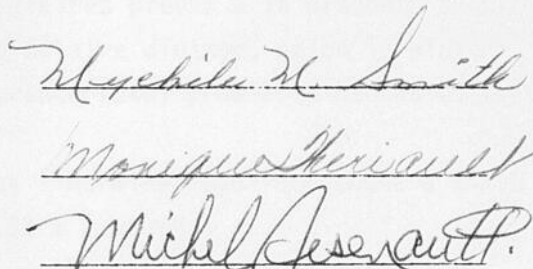 Mychilu N. Smith
Monique Theriault
Michel Arsenault.